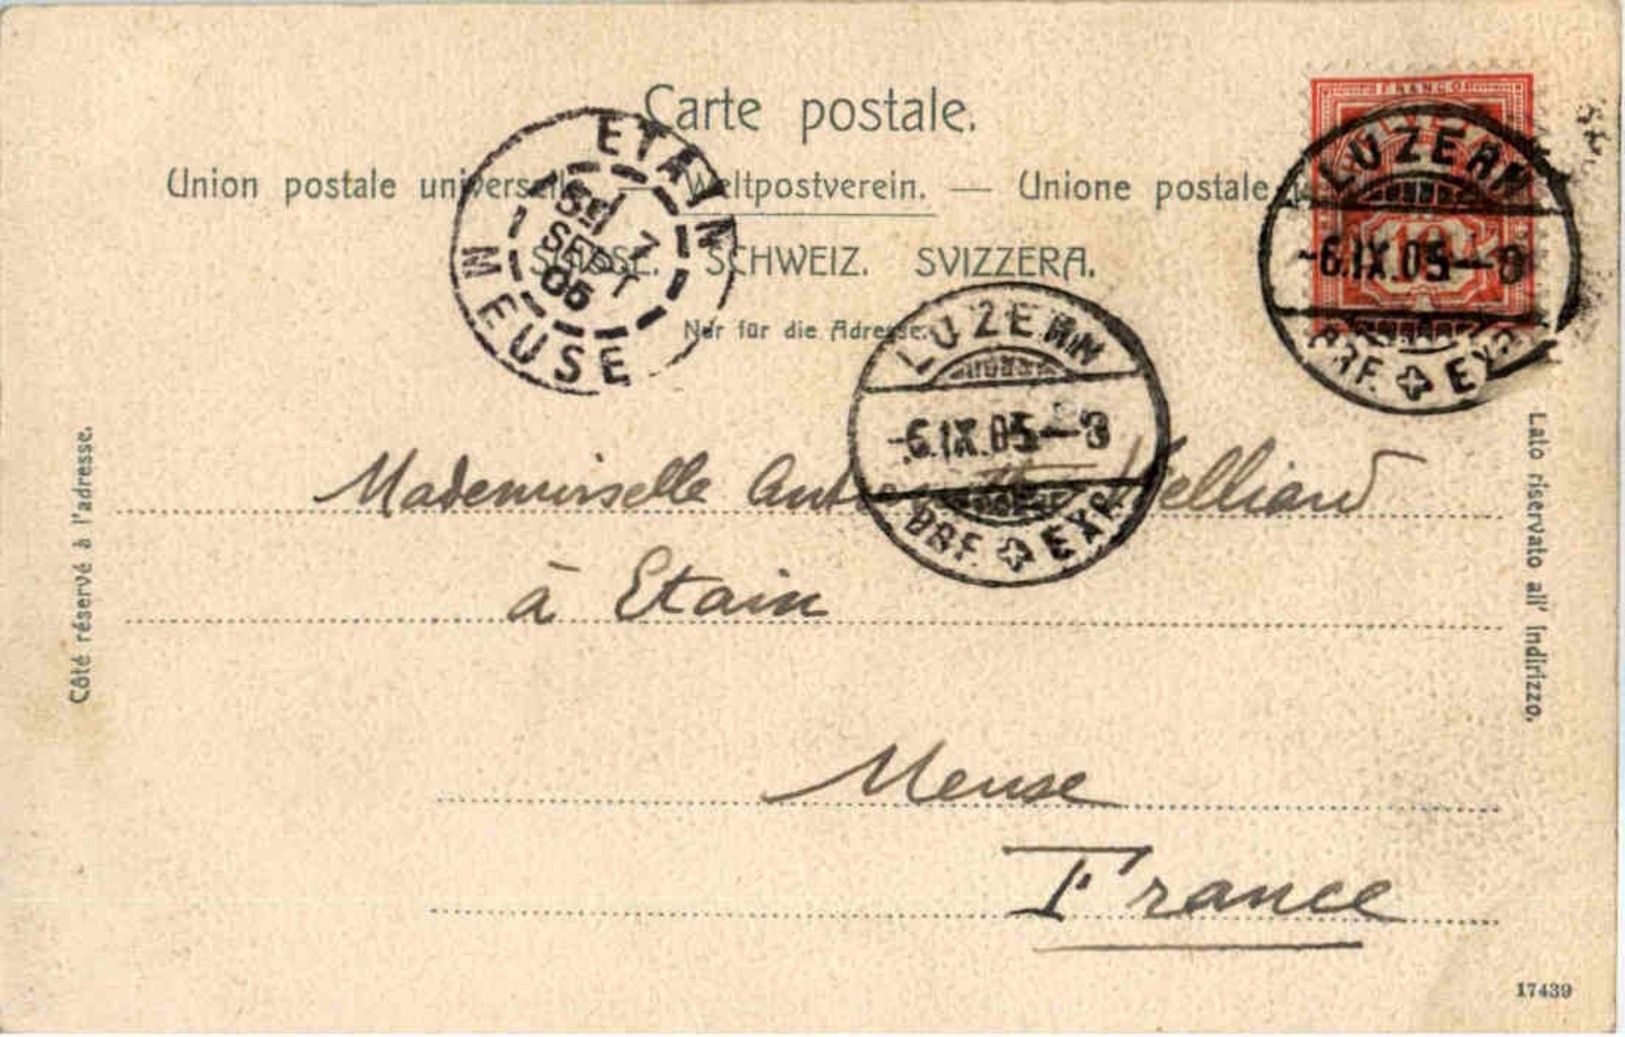 Carte postale.
Union postale universelle — Weltpostverein. — Unione postale
SUISSE. SCHWEIZ. SVIZZERA.
Nur für die Adresse.
ETAIN
7
SEPT
05
MEUSE
FRANCO
10
LUZERN
-6.IX.05—8
BRF. EXP.
LUZERN
-6.IX.05—8
BRF. EXP.
Côté réservé à l'adresse.
Lato riservato all' indirizzo.
Mademoiselle
à Etain
Meuse
France
17439